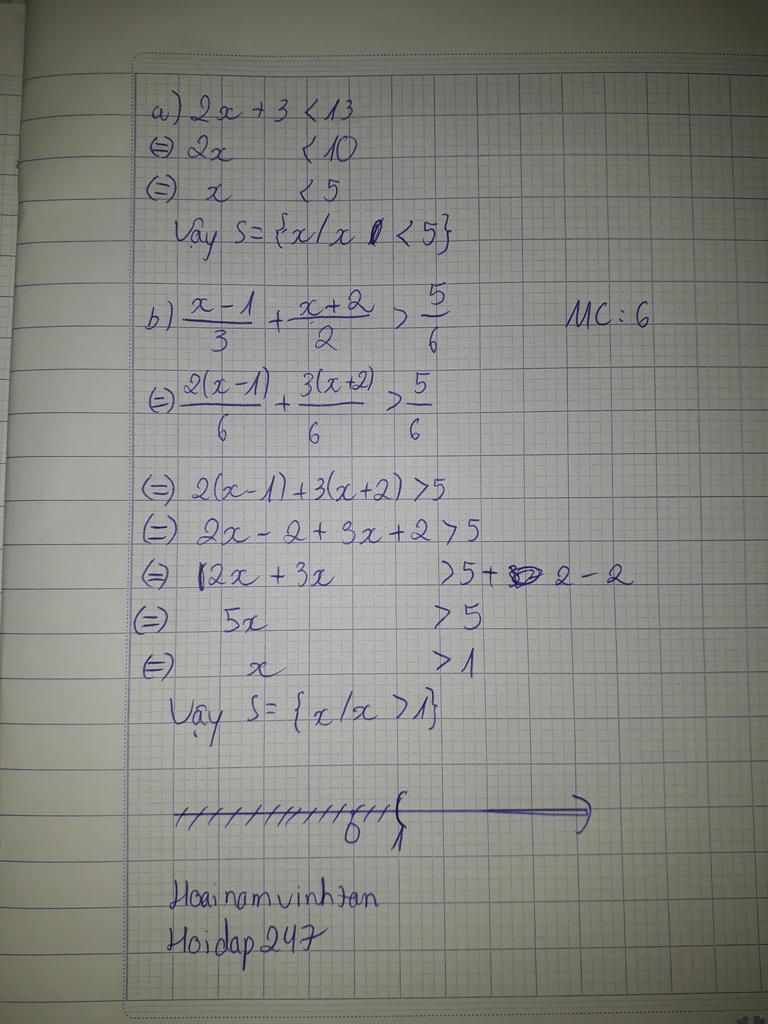 a) 2x + 3 < 13
(=) 2x < 10
(=) x < 5
Vậy S = {x/x < 5}
b) (x - 1)/3 + (x + 2)/2 > 5/6 MC: 6
(=) 2(x - 1)/6 + 3(x + 2)/6 > 5/6
(=) 2(x - 1) + 3(x + 2) > 5
(=) 2x - 2 + 3x + 2 > 5
(=) 2x + 3x > 5 + 2 - 2
(=) 5x > 5
(=) x > 1
Vậy S = {x/x > 1}
0 1
Hoainamvinhtan
Hoidap247